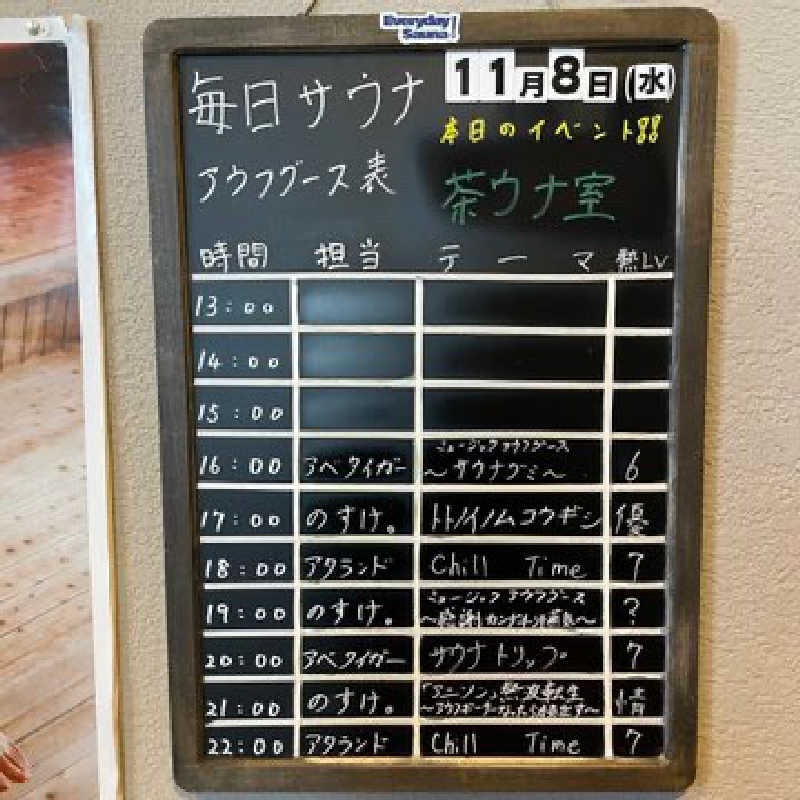 Everyday Sauna!
毎日サウナ 11月8日(水)
本日のイベント
アウフグース表 茶ウナ室
時間 担当 テーマ 熱LV
13:00
14:00
15:00
16:00 アベタイガー ミュージックアウフグース ～サウナグミ～ 6
17:00 のすけ。 トトノイノムコウギシ 優
18:00 アタランド Chill Time 7
19:00 のすけ。 ミュージックアウフグース ?
20:00 アベタイガー サウナトリップ 7
21:00 のすけ。 「アニソン」 情
22:00 アタランド Chill Time 7